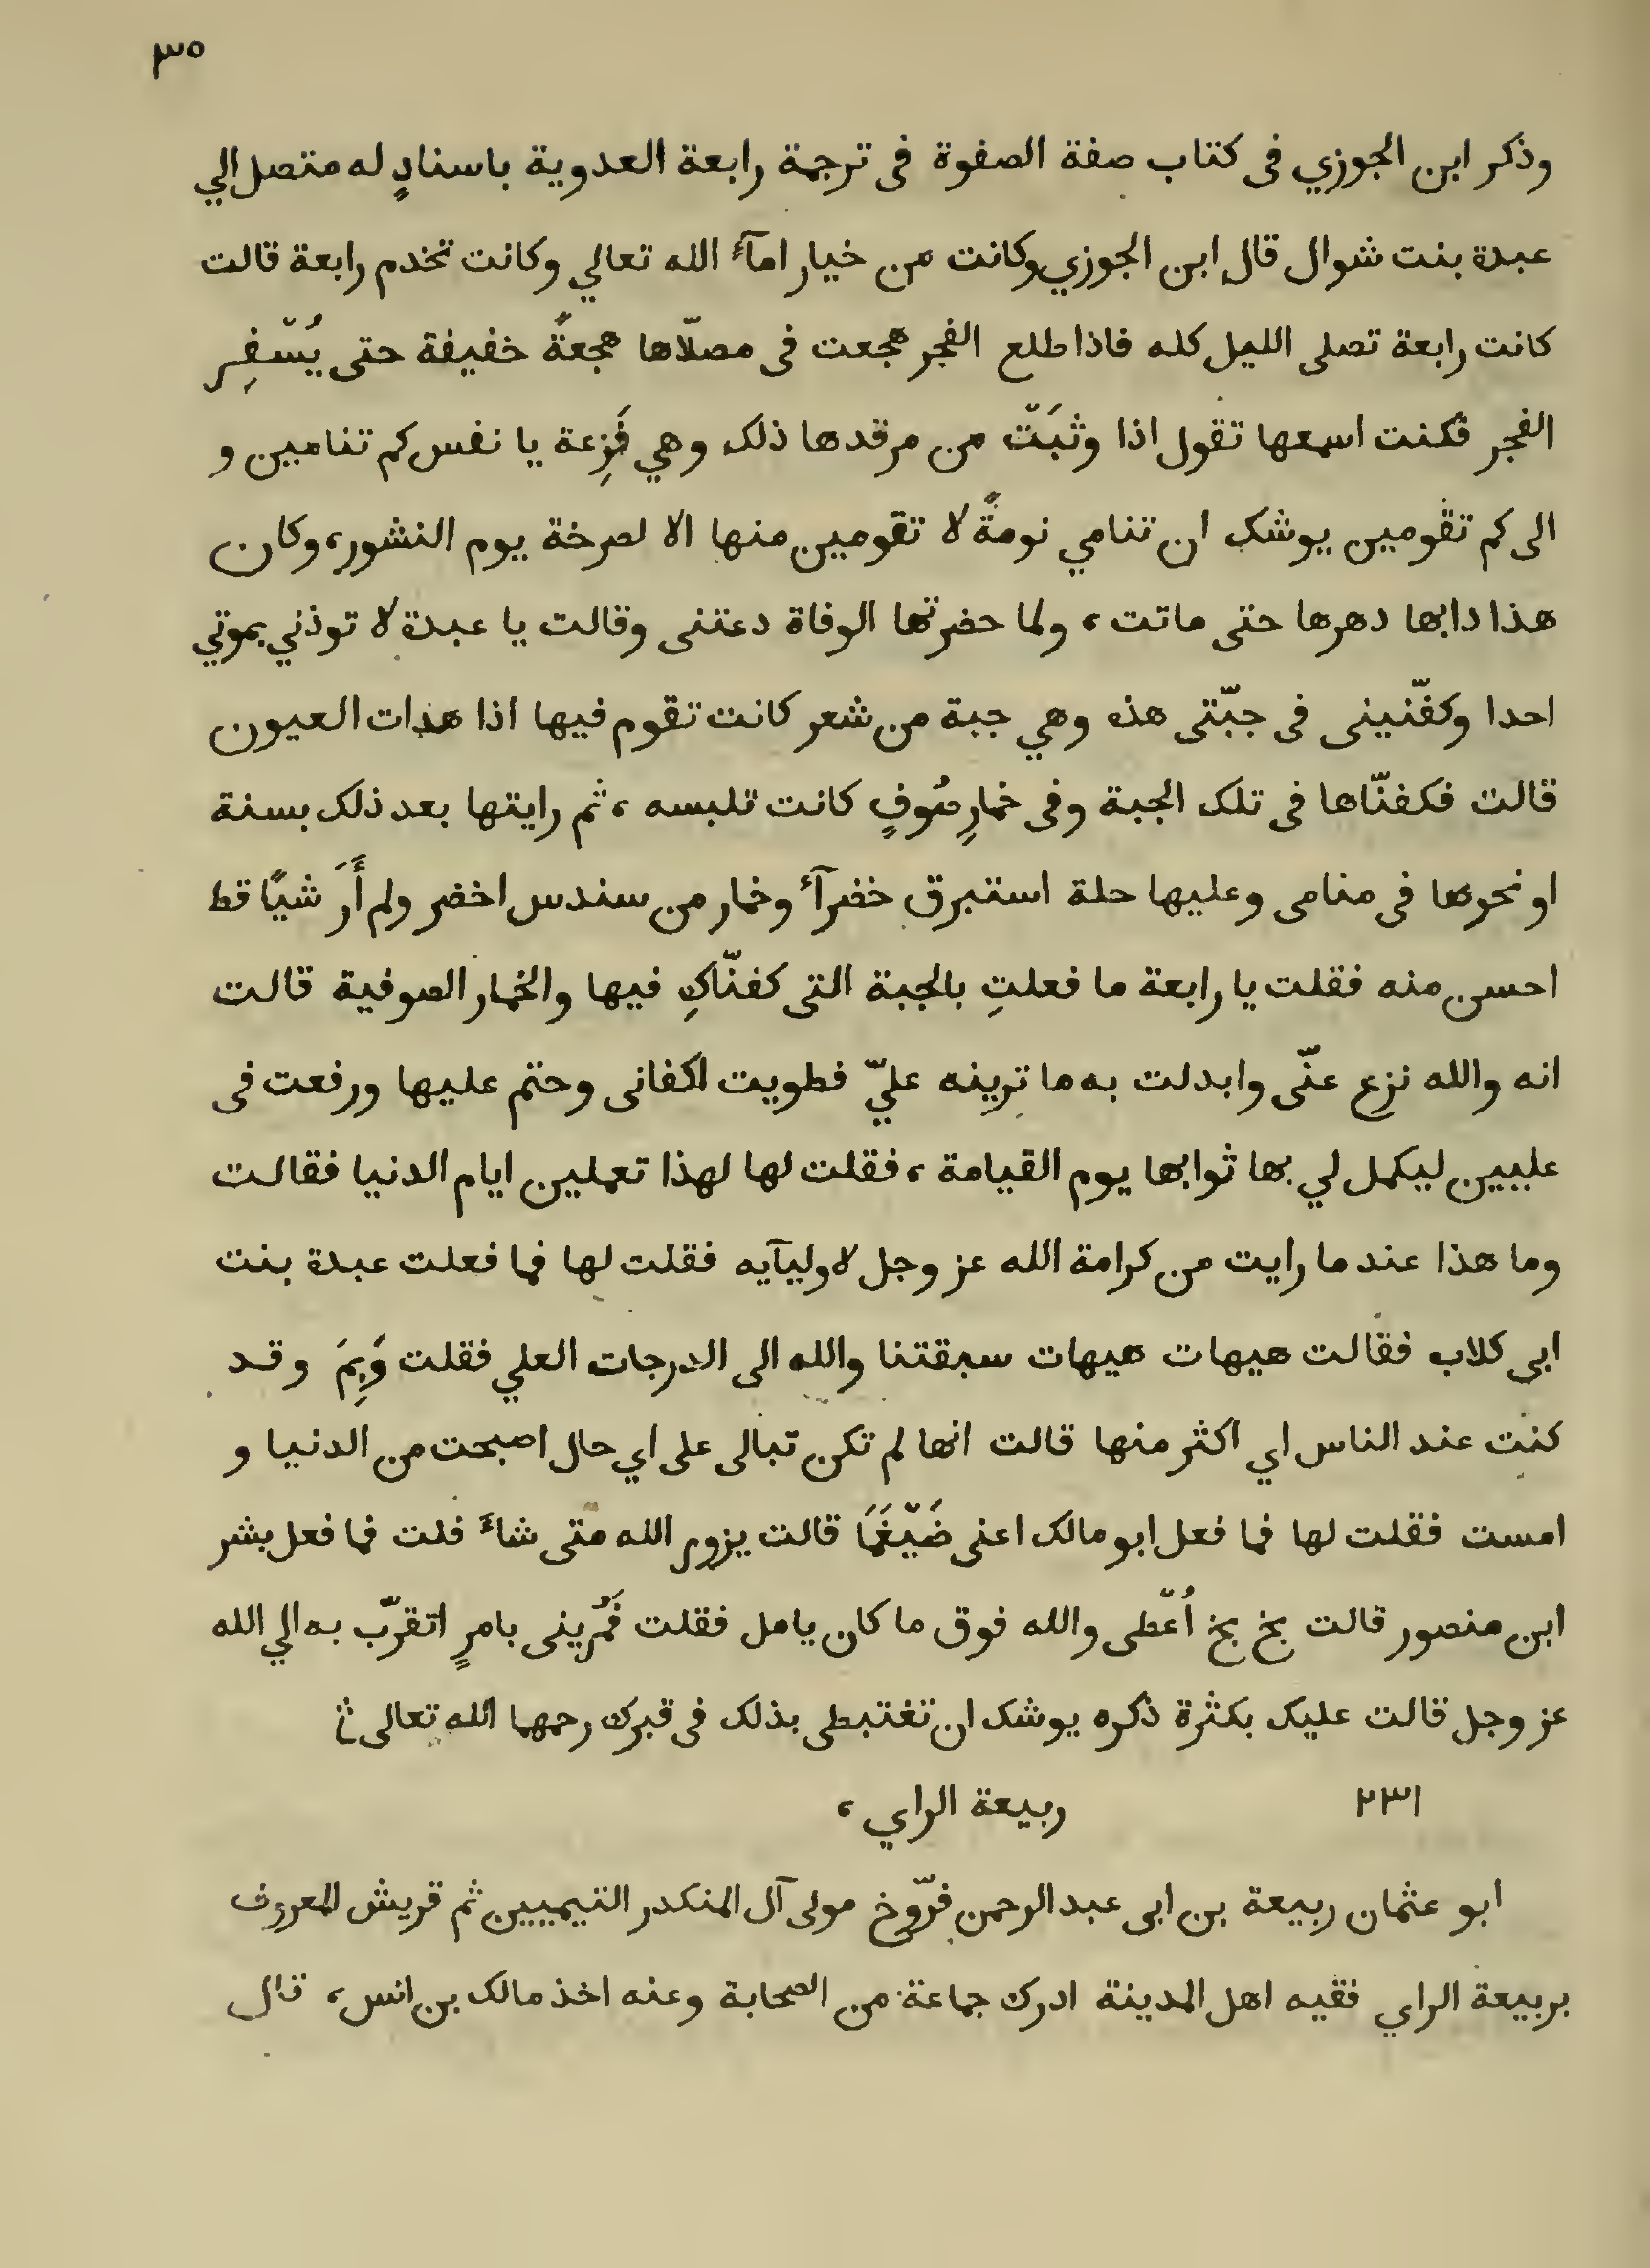 ٣٥
وذكر ابن الجوزي فى كتاب صفة الصفوة فى ترجمة رابعة العدوية باسنادٍ له متصل الي
عبدة بنت شوال قال ابن الجوزي وكانت من خيار امآءِ الله تعالي وكانت تخدم رابعة قالت
كانت رابعة تصلى الليل كله فاذا طلع الفجر هجعت فى مصلّاها هجعةً خفيفة حتى يُسْفِر
الفجر فكنت اسمعها تقول اذا وثبَتْ من مرقدها ذلك وهي فَزِعة يا نفس كم تنامين و
الى كم تقومين يوشك ان تنامي نومةً لا تقومين منها الا لصرخة يوم النشور، وكان
هذا دابها دهرها حتى ماتت، ولما حضرتها الوفاة دعتنى وقالت يا عبدة لا توذني بموتي
احدا وكفّنينى فى جبّتى هذه وهي جبة من شعر كانت تقوم فيها اذا هدات العيون
قالت فكفنّاها فى تلك الجبة وفى خمارِ صُوفٍ كانت تلبسه، ثم رايتها بعد ذلك بسنة
او نحوها فى منامى وعليها حلة استبرق خضرآء وخمار من سندس اخضر ولم أَرَ شيًا قط
احسن منه فقلت يا رابعة ما فعلتِ بالجبة التى كفنّاكِ فيها والخمار الصوفية قالت
انه والله نزع عنّى وابدلت به ما ترينه عليّ فطويت اكفانى وختم عليها ورفعت فى
عليين ليكمل لي بها ثوابها يوم القيامة، فقلت لها لهذا تعملين ايام الدنيا فقالت
وما هذا عند ما رايت من كرامة الله عز وجل لاوليآيه فقلت لها فما فعلت عبدة بنت
ابى كلاب فقالت هيهات هيهات سبقتنا والله الى الدرجات العلي فقلت وَبِمَ وقد
كنت عند الناس اي اكثر منها قالت انها لم تكن تبالى على اي حال اصبحت من الدنيا و
امست فقلت لها فما فعل ابو مالك اعنى ضَيْغَمَا قالت يزور الله متى شاءَ قلت فما فعل بشر
ابن منصور قالت بخ بخ اُعْطى والله فوق ما كان يامل فقلت فمُرينى بامرٍ اتقرّب به الي الله
عز وجل قالت عليك بكثرة ذكره يوشك ان تغتبطى بذلك فى قبرك رحمهما الله تعالى
٢٣١ ربيعة الراي،
ابو عثمان ربيعة بن ابى عبد الرحمن فرّوخ مولى آل المنكدر التيميين ثم قريش المعروف
بربيعة الراي فقيه اهل المدينة ادرك جماعة من الصحابة وعنه اخذ مالك بن انس، قال